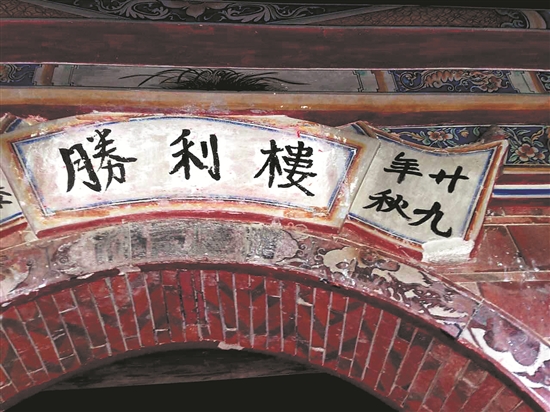 勝利樓
廿九
年秋